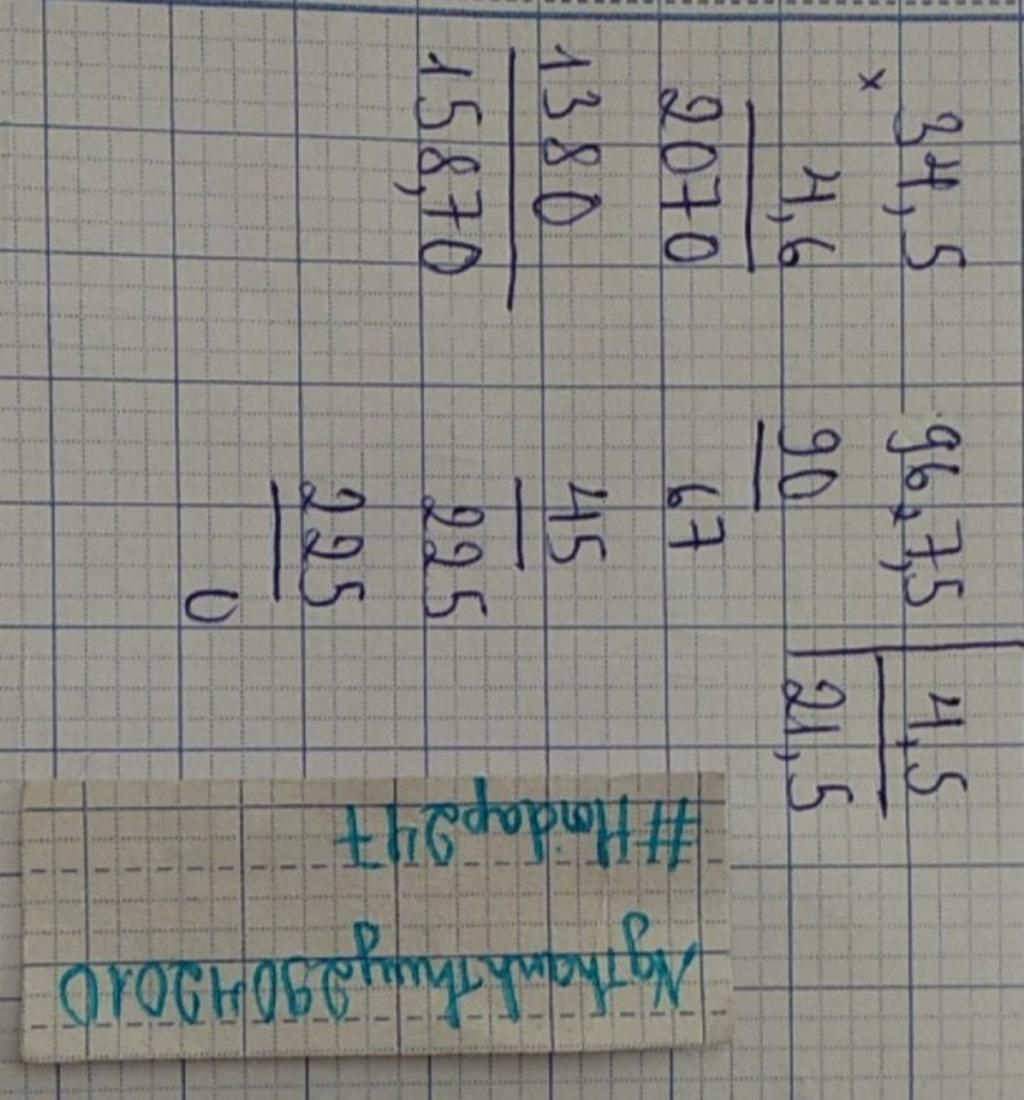 × 34,5
4,6
2070
1380
158,70
96,7,5 | 4,5
90 | 21,5
67
45
225
225
0
#Hoidap247
NgThanhThuy29042010